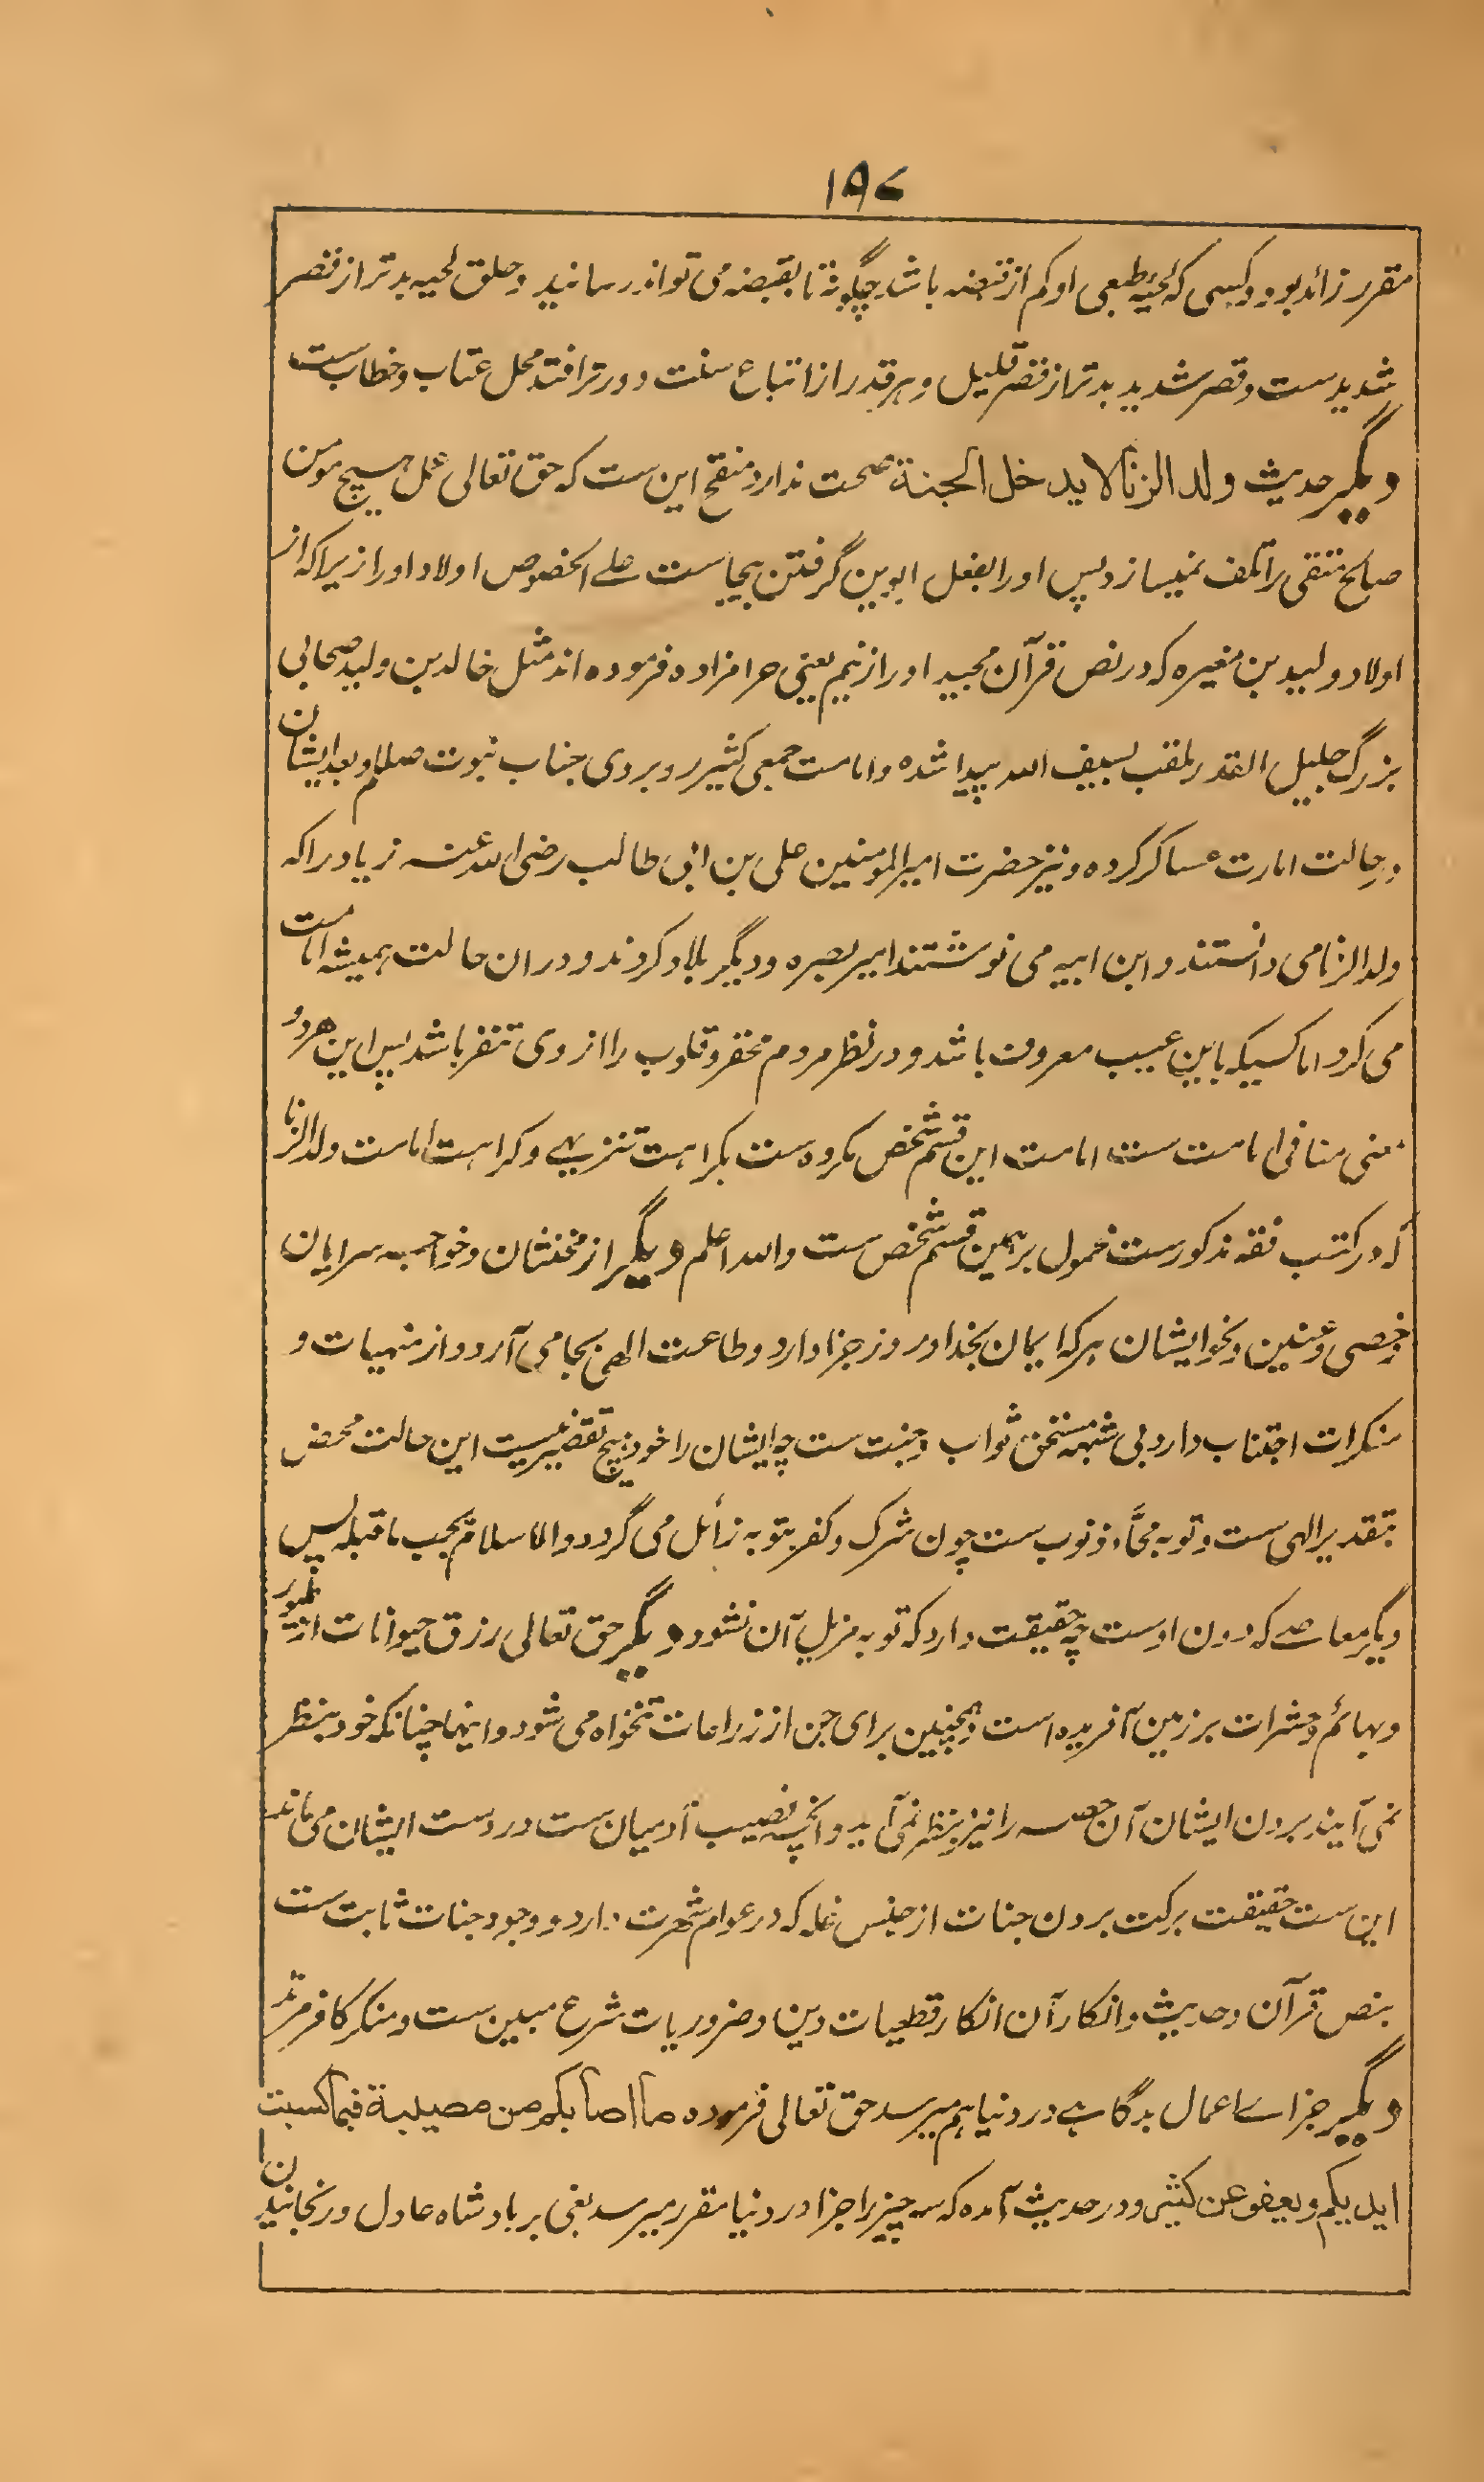 ۱۹۷
مقرر زائد بود و کسی که لحیهٔ طبعی او کم از قبضه باشد چگونه تا بقبضه می تواند رسانید و حلق لحیه بدتر از قصر
شدیدست و قصر شدید بدتر از قصر قلیل و هر قدر از اتباع سنت دورتر افتد محل عتاب و خطاب ست
دیگر حدیث ولد الزنا لا یدخل الجنة صحت ندارد منقح این ست که حق تعالی عمل هیچ مومن
صالح متقی را تلف نمیسازد پس او را بفعل ابوین گرفتن بیجاست علی الخصوص اولاد او را زیرا که از
اولاد ولید بن مغیره که در نص قرآن مجید او را زنیم یعنی حرامزاده فرموده اند مثل خالد بن ولید صحابی
بزرگ جلیل القدر ملقب بسیف الله پیدا شده و امامت جمعی کثیر روبروی جناب نبوت صلعم و بعد ایشان
در حالت امارت عساکر کرده و نیز حضرت امیر المومنین علی بن ابی طالب رضی الله عنه زیاد را که
ولد الزنا می دانستند و ابن ابیه می نوشتند امیر بصره و دیگر بلاد کردند و در ان حالت همیشه امامت
می کرد اما کسیکه باین عیب معروف باشد و در نظر مردم محقر و قلوب را از وی تنفر باشد پس این هر دو
معنی منافی امامت ست امامت این قسم شخص مکروه ست بکراهت تنزیهی و کراهت امامت ولد الزنا
که در کتب فقه مذکورست محمول بر همین قسم شخص ست والله اعلم دیگر از مخنثان و خواجه سرایان
و خصی و عنین و نحو ایشان هر که ایمان بخدا و روز جزا دارد و طاعت الهی بجا می آرد و از منهیات و
منکرات اجتناب دارد بی شبهه مستحق ثواب و جنت ست چه ایشان را خود هیچ تقصیر نیست این حالت محض
بتقدیر الهی ست و توبه محّاء ذنوب ست چون شرک و کفر بتوبه زائل می گردد و الاسلام یجب ما قبله پس
دیگر معاصی که دون اوست چه حقیقت دارد که توبه مزیل آن نشود دیگر حق تعالی رزق حیوانات از طیور
و بهائم و حشرات بر زمین آفریده است و همچنین برای جن از زراعات تنخواه می شود و اینها چنانکه خود بنظر
نمی آیند بردن ایشان آن حصه را نیز بنظر نمی آید و آنچه نصیب آدمیان ست در دست ایشان می ماند
این ست حقیقت برکت بردن جنات از جنس غله که در عوام شهرت دارد و وجود جنات ثابت ست
بنص قرآن و حدیث و انکار آن انکار قطعیات دین و ضروریات شرع مبین ست و منکر کافر مرتد
دیگر جزاے اعمال بد گاهے در دنیا هم میرسد حق تعالی فرموده ما اصابکم من مصیبة فبما کسبت
ایدیکم و یعفو عن کثیر و در حدیث آمده که سه چیز را جزا در دنیا مقرر میرسد بغی بر بادشاه عادل و رنجانیدن